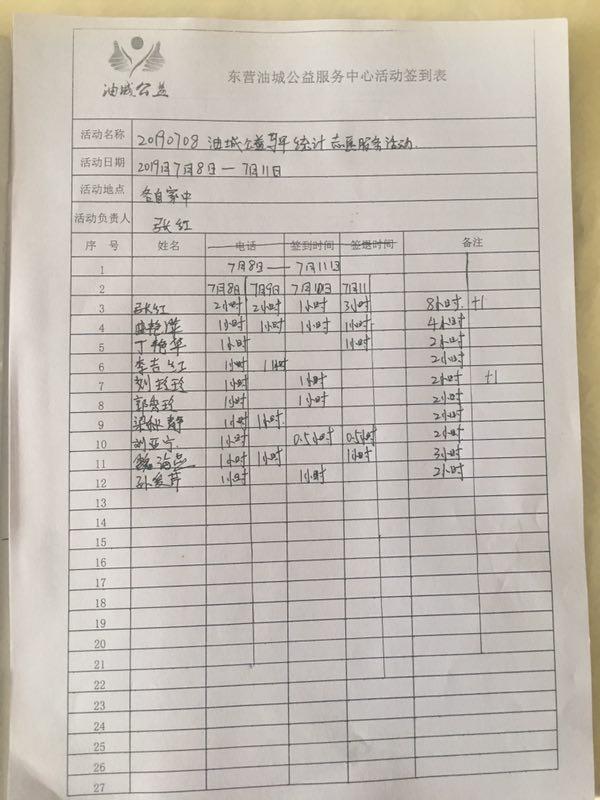 油城公益
东营油城公益服务中心活动签到表
活动名称 20190708 油城公益 统计志愿服务活动.
活动日期 2019年7月8日 — 7月11日
活动地点 各自家中
活动负责人 张红
序 号 姓名 电话 签到时间 签退时间 备注
1 7月8日 — 7月11日
2 7月8日 7月9日 7月10日 7月11
3 张红 2小时 2小时 1小时 3小时 8小时. +1
4 1小时 1小时 1小时 1小时 4小时
5 丁艳华 1小时 1小时 2小时
6 李吉红 1小时 1小时 2小时
7 刘玲玲 1小时 1小时 2小时 +1
8 1小时 1小时 2小时
9 梁秋静 1小时 1小时. 2小时
10 刘亚宁. 1小时 0.5小时 0.5小时 2小时
11 1小时 1小时 1小时 3小时
12 孙爱芹 1小时 1小时 2小时
13
14
15
16
17
18
19
20
21
22
23
24
25
26
27